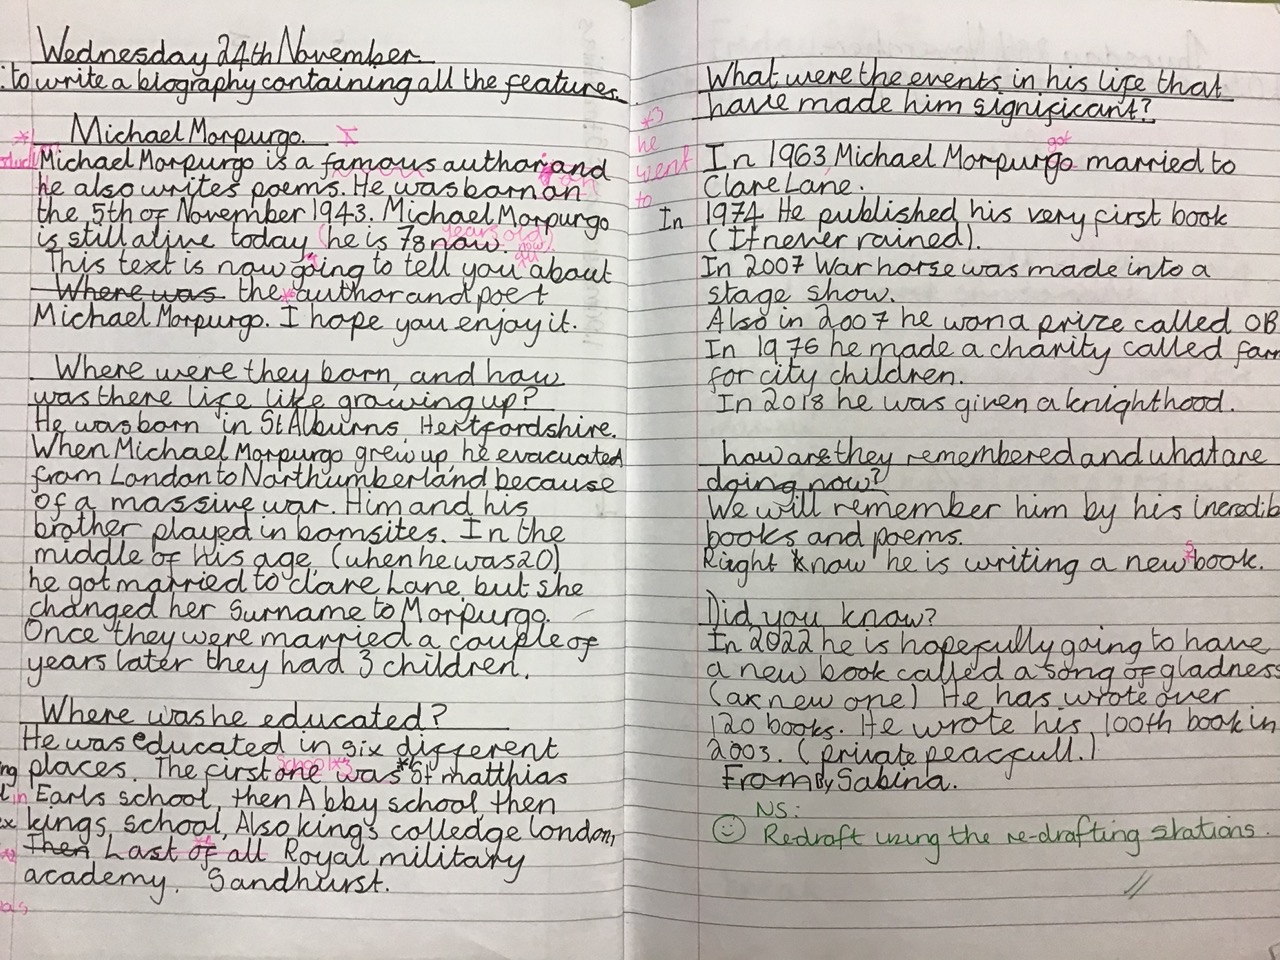 Wednesday 24th November
: to write a biography containing all the features.
Michael Morpurgo.
Michael Morpurgo is a famous author and
he also writes poems. He was born on
the 5th of November 1943. Michael Morpurgo
years old
is still alive today (he is 78 now.
This text is now going to tell you about
Where was the author and poet
Michael Morpurgo. I hope you enjoy it.
Where were they born, and how
was there life like growing up?
He was born in St Alburns, Hertfordshire.
When Michael Morpurgo grew up, he evacuated
from London to Northumberland because
of a massive war. Him and his
brother played in bomsites. In the
middle of his age, (when he was 20)
he got married to clare Lane, but she
changed her surname to Morpurgo.
Once they were married a couple of
years later they had 3 children.
Where was he educated?
He was educated in six different
school
places. The first one was St matthias
in Earls school, then Abby school then
kings, school, Also king's colledge london,
Then Last of all Royal military
academy. Sandhurst.
What were the events in his life that
have made him significant?
he
went
to
got
In 1963, Michael Morpurgo married to
Clare Lane.
In 1974 He published his very first book
(It never rained).
In 2007 War horse was made into a
stage show.
Also in 2007 he won a prize called OB
In 1976 he made a charity called farm
for city children.
In 2018 he was given a knighthood.
how are they remembered and what are
doing now?
We will remember him by his incredib
books and poems.
Right know he is writing a new book.
Did you know?
In 2022 he is hopefully going to have
a new book called a song of gladness
(a new one) He has wrote over
120 books. He wrote his 100th book in
2003. (private peacfull.)
From By Sabina.
NS:
Redraft using the re-drafting stations.